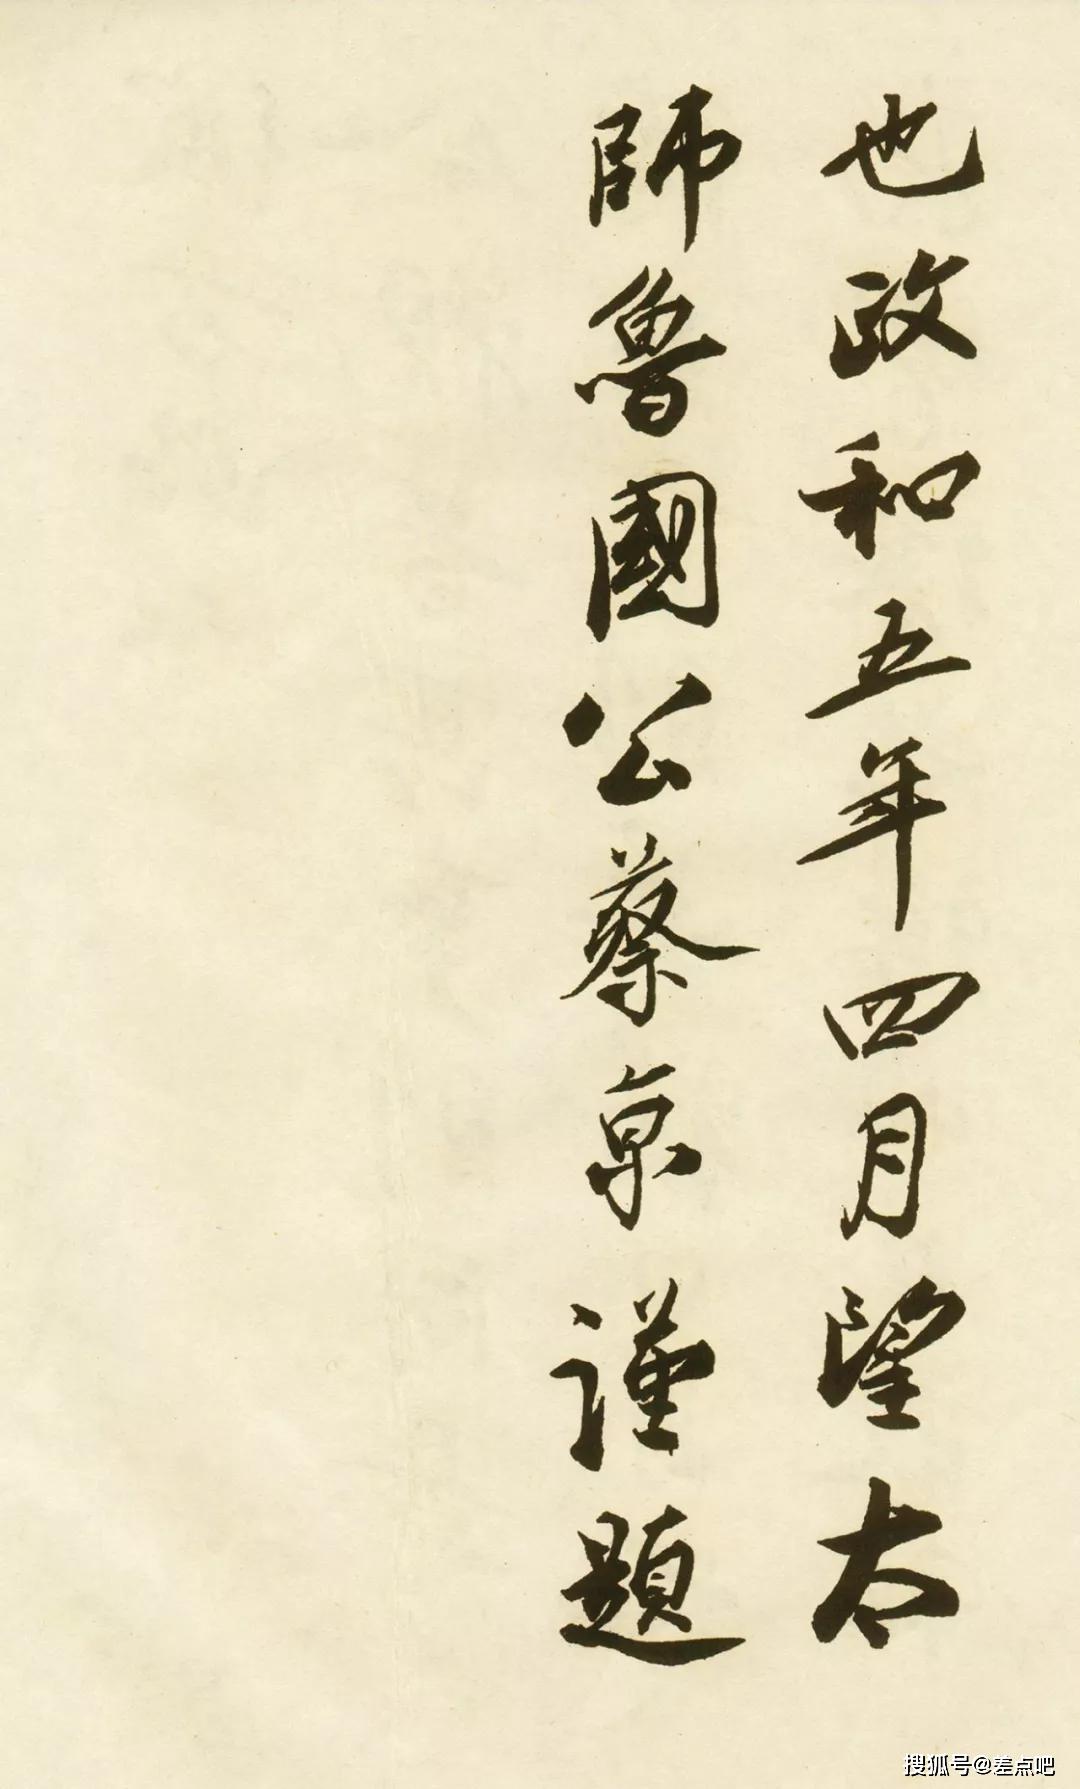 也政和五年四月望太
師魯國公蔡京謹題
搜狐号@差点吧